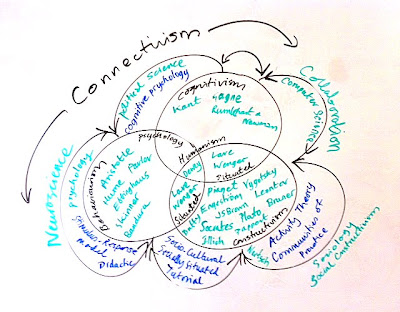 Connectivism
Collaboration
Political Science
Cognitive psychology
Computer Science
Cognitivism
Kant
Gagne
Rumelhart &
Newman
psychology
Humanism
Neuroscience
psychology
Behaviourism
Aristotle
Hume
Pavlov
Ebbinghaus
Skinner
Bandura
Stimulus Response
model
Didactic
Dewey
Lave
Wenger
Situated
Lave
Wenger
Situated
Piaget
Vygotsky
Engestrom
Leontev
JS Brown
Bruner
Socrates
Plato
Illich
Constructivism
Socio-Cultural
Socially Situated
Tutorial
Activity Theory
Communities of
Practice
Sociology
Social Constructivism